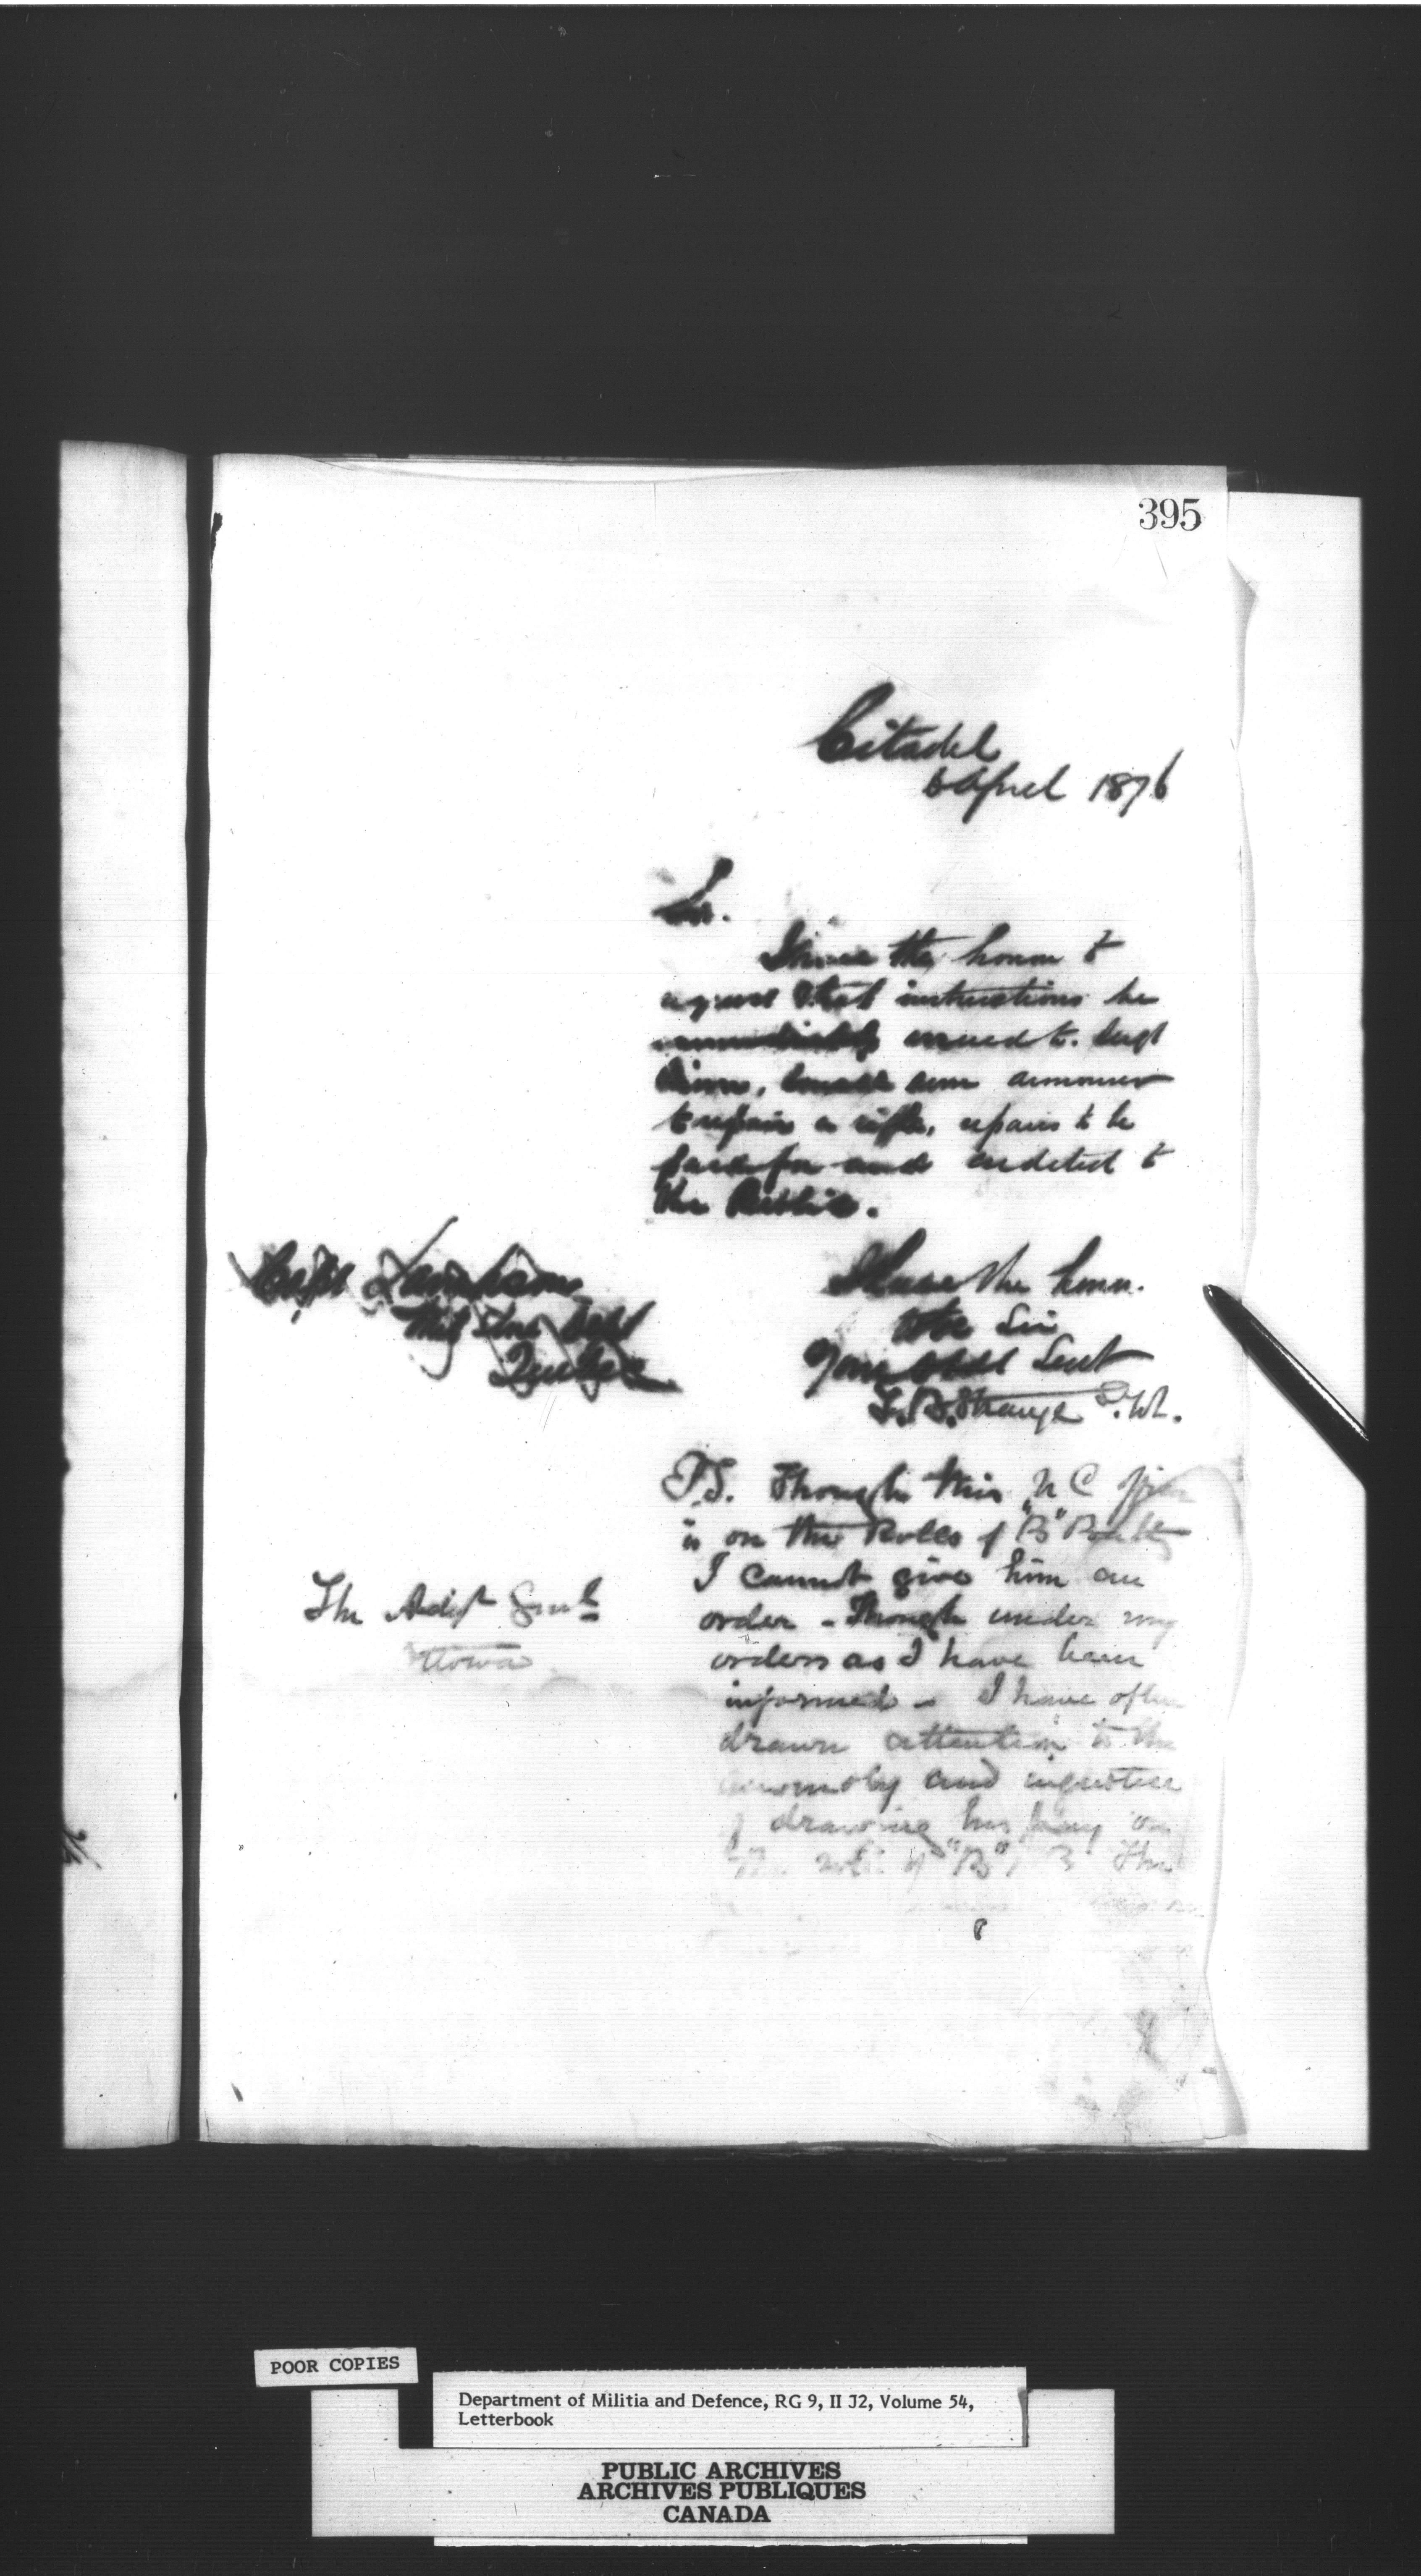 395
Citadel
6 April 1876
Sir.
I have the honor to
request that instructions be
immediately issued to Sergt
small arm armourer
to repair a rifle, repairs to be
paid for and credited to
the Public.
I have the honor
to be Sir
Your Obdt Servt
T.B. Strange Lt. Col.
Capt
Mil Dept
Quebec
The Adjt Genl
Ottawa
P.S. Though this N C Officer
is on the Rolls of "B" Battery
I cannot give him an
order - Though under my
orders as I have been
informed - I have often
drawn attention to the
anomoly and injustice
of drawing his pay on
the roll of "B" B The
POOR COPIES
Department of Militia and Defence, RG 9, II J2, Volume 54,
Letterbook
PUBLIC ARCHIVES
ARCHIVES PUBLIQUES
CANADA